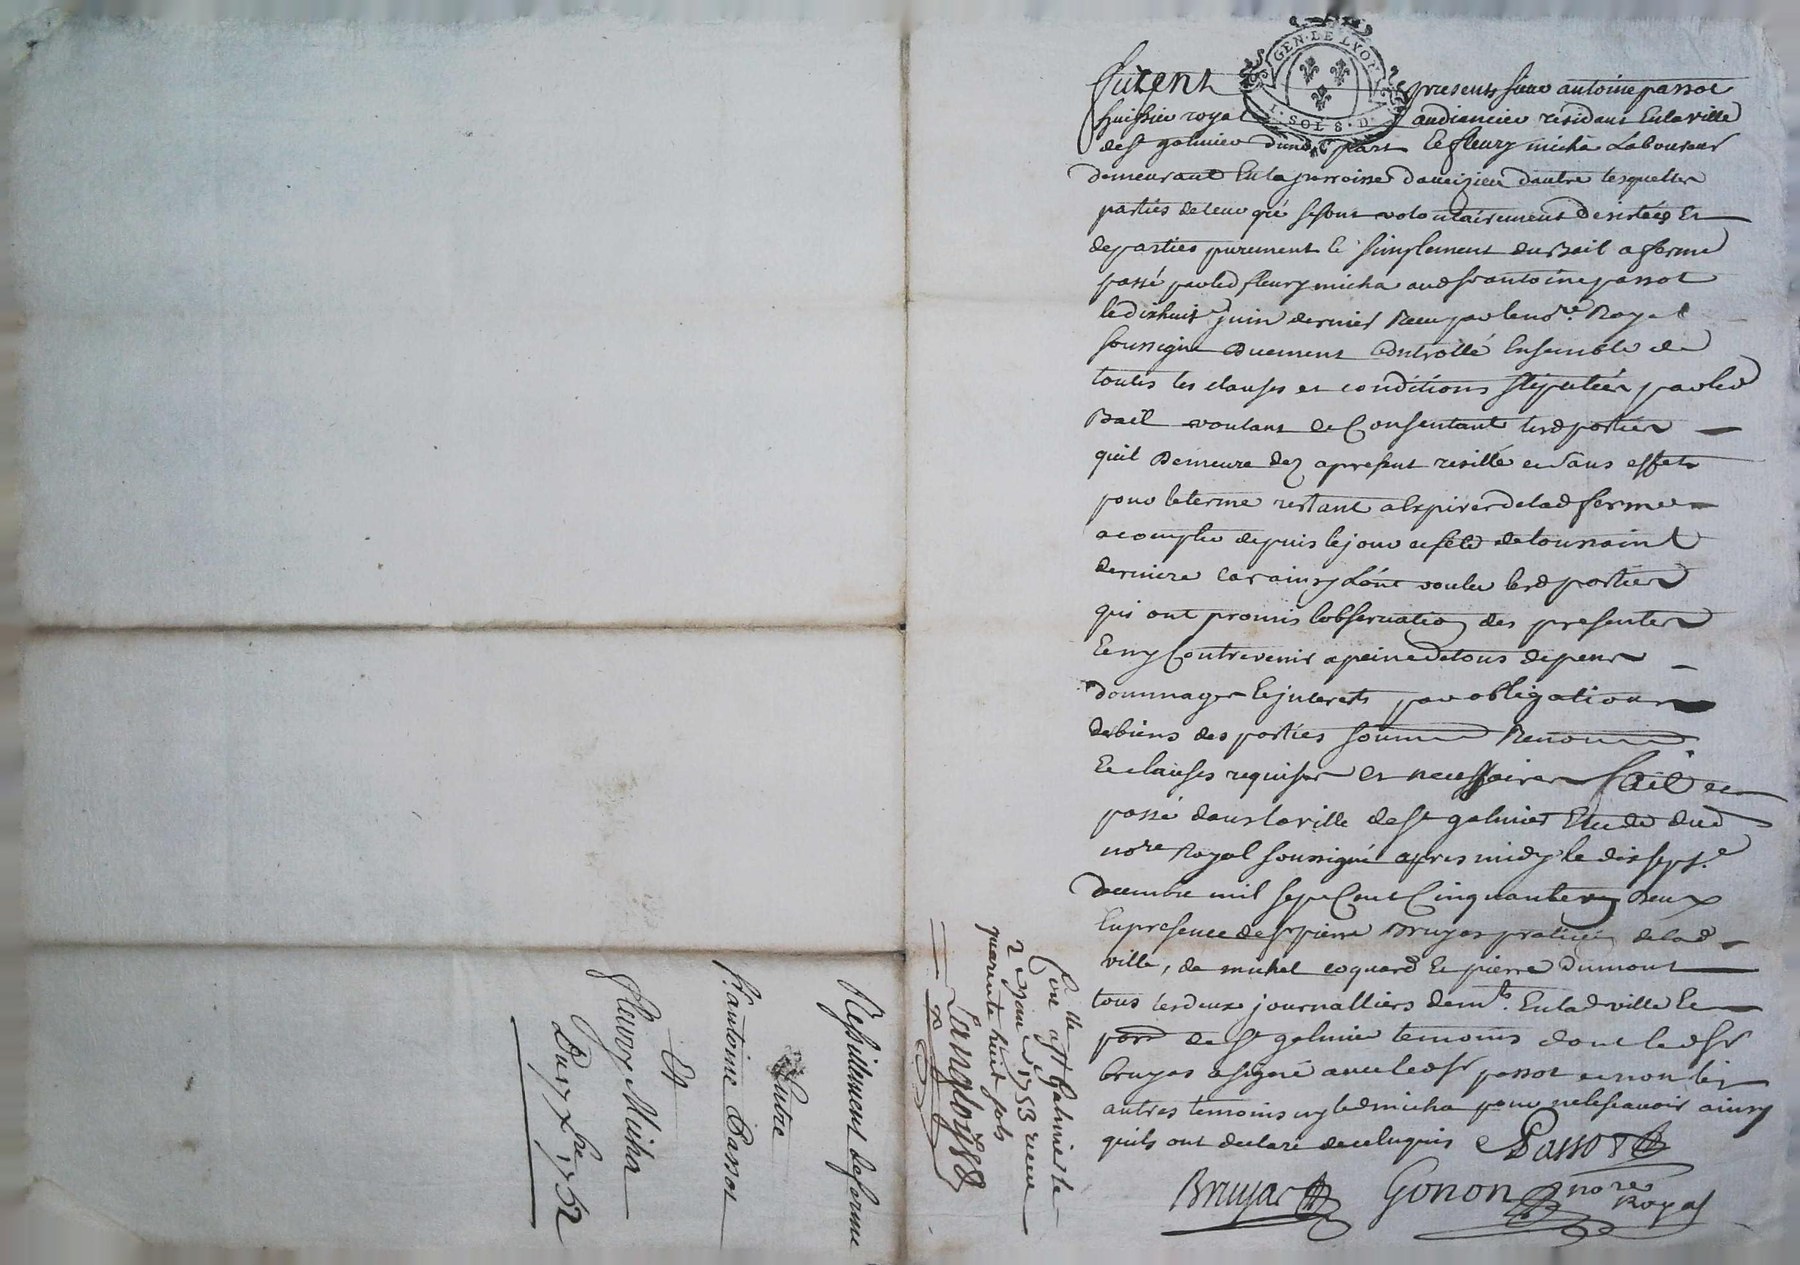 GEN. DE LYON
SOLS D.
furent presents sieur antoine passot
huissier royal audiancier residant en la ville
de st galmier dune part Et fleury micha Laboureur
demeurant en la parroisse daveizieu dautre lesquelles
parties de leur gré se sont volontairement desistées Et
departies purement Et simplement du Bail a ferme
passé par led fleury micha aud sr antoine passot
le dixhuit juin dernier Receu par le nore Royal
soussigné duement Controllé Ensemble de
toutes les clauses et conditions stipulées par led
Bail voulant et Consentant lesd parties
quil Demeure dez apresent resillé et sans effets
pour le terme restant a Expirer de lad ferme
a compter depuis le jour et fete de toussaint
derniere Car ainsy Lont voulu lesd parties
qui ont promis lobservation des presentes
Et ny Contrevenir a peine de tous depens
dommages Et interets par obligation
de biens des parties soumis Renon
Et clauses requises et necessaires fait et
passé dans la ville de st galmier Etude dud
nore Royal soussigné apres midy le dix sept.e
decembre mil sept Cent Cinquante Deux
En presence de sr pierre Bruyas praticien de lad
ville, de michel coquard Et pierre Dumont
tous les deux journalliers demts. En lad ville Et
parr de st galmier temoins dont led sr
bruyas a signé avec led sr passot et non les
autres temoins ny led micha pour ne le scavoir ainsy
quils ont declaré de ce Enquis Passot
Bruyas Gonon nore
Royal
Con.lle a st Galmier le
2 janv 1753 receu
quarante huit sols
Langloys
Resillement de ferme
Entre
Sr. antoine Passot
Et
fleury Micha
Du 17 Xbre 1752